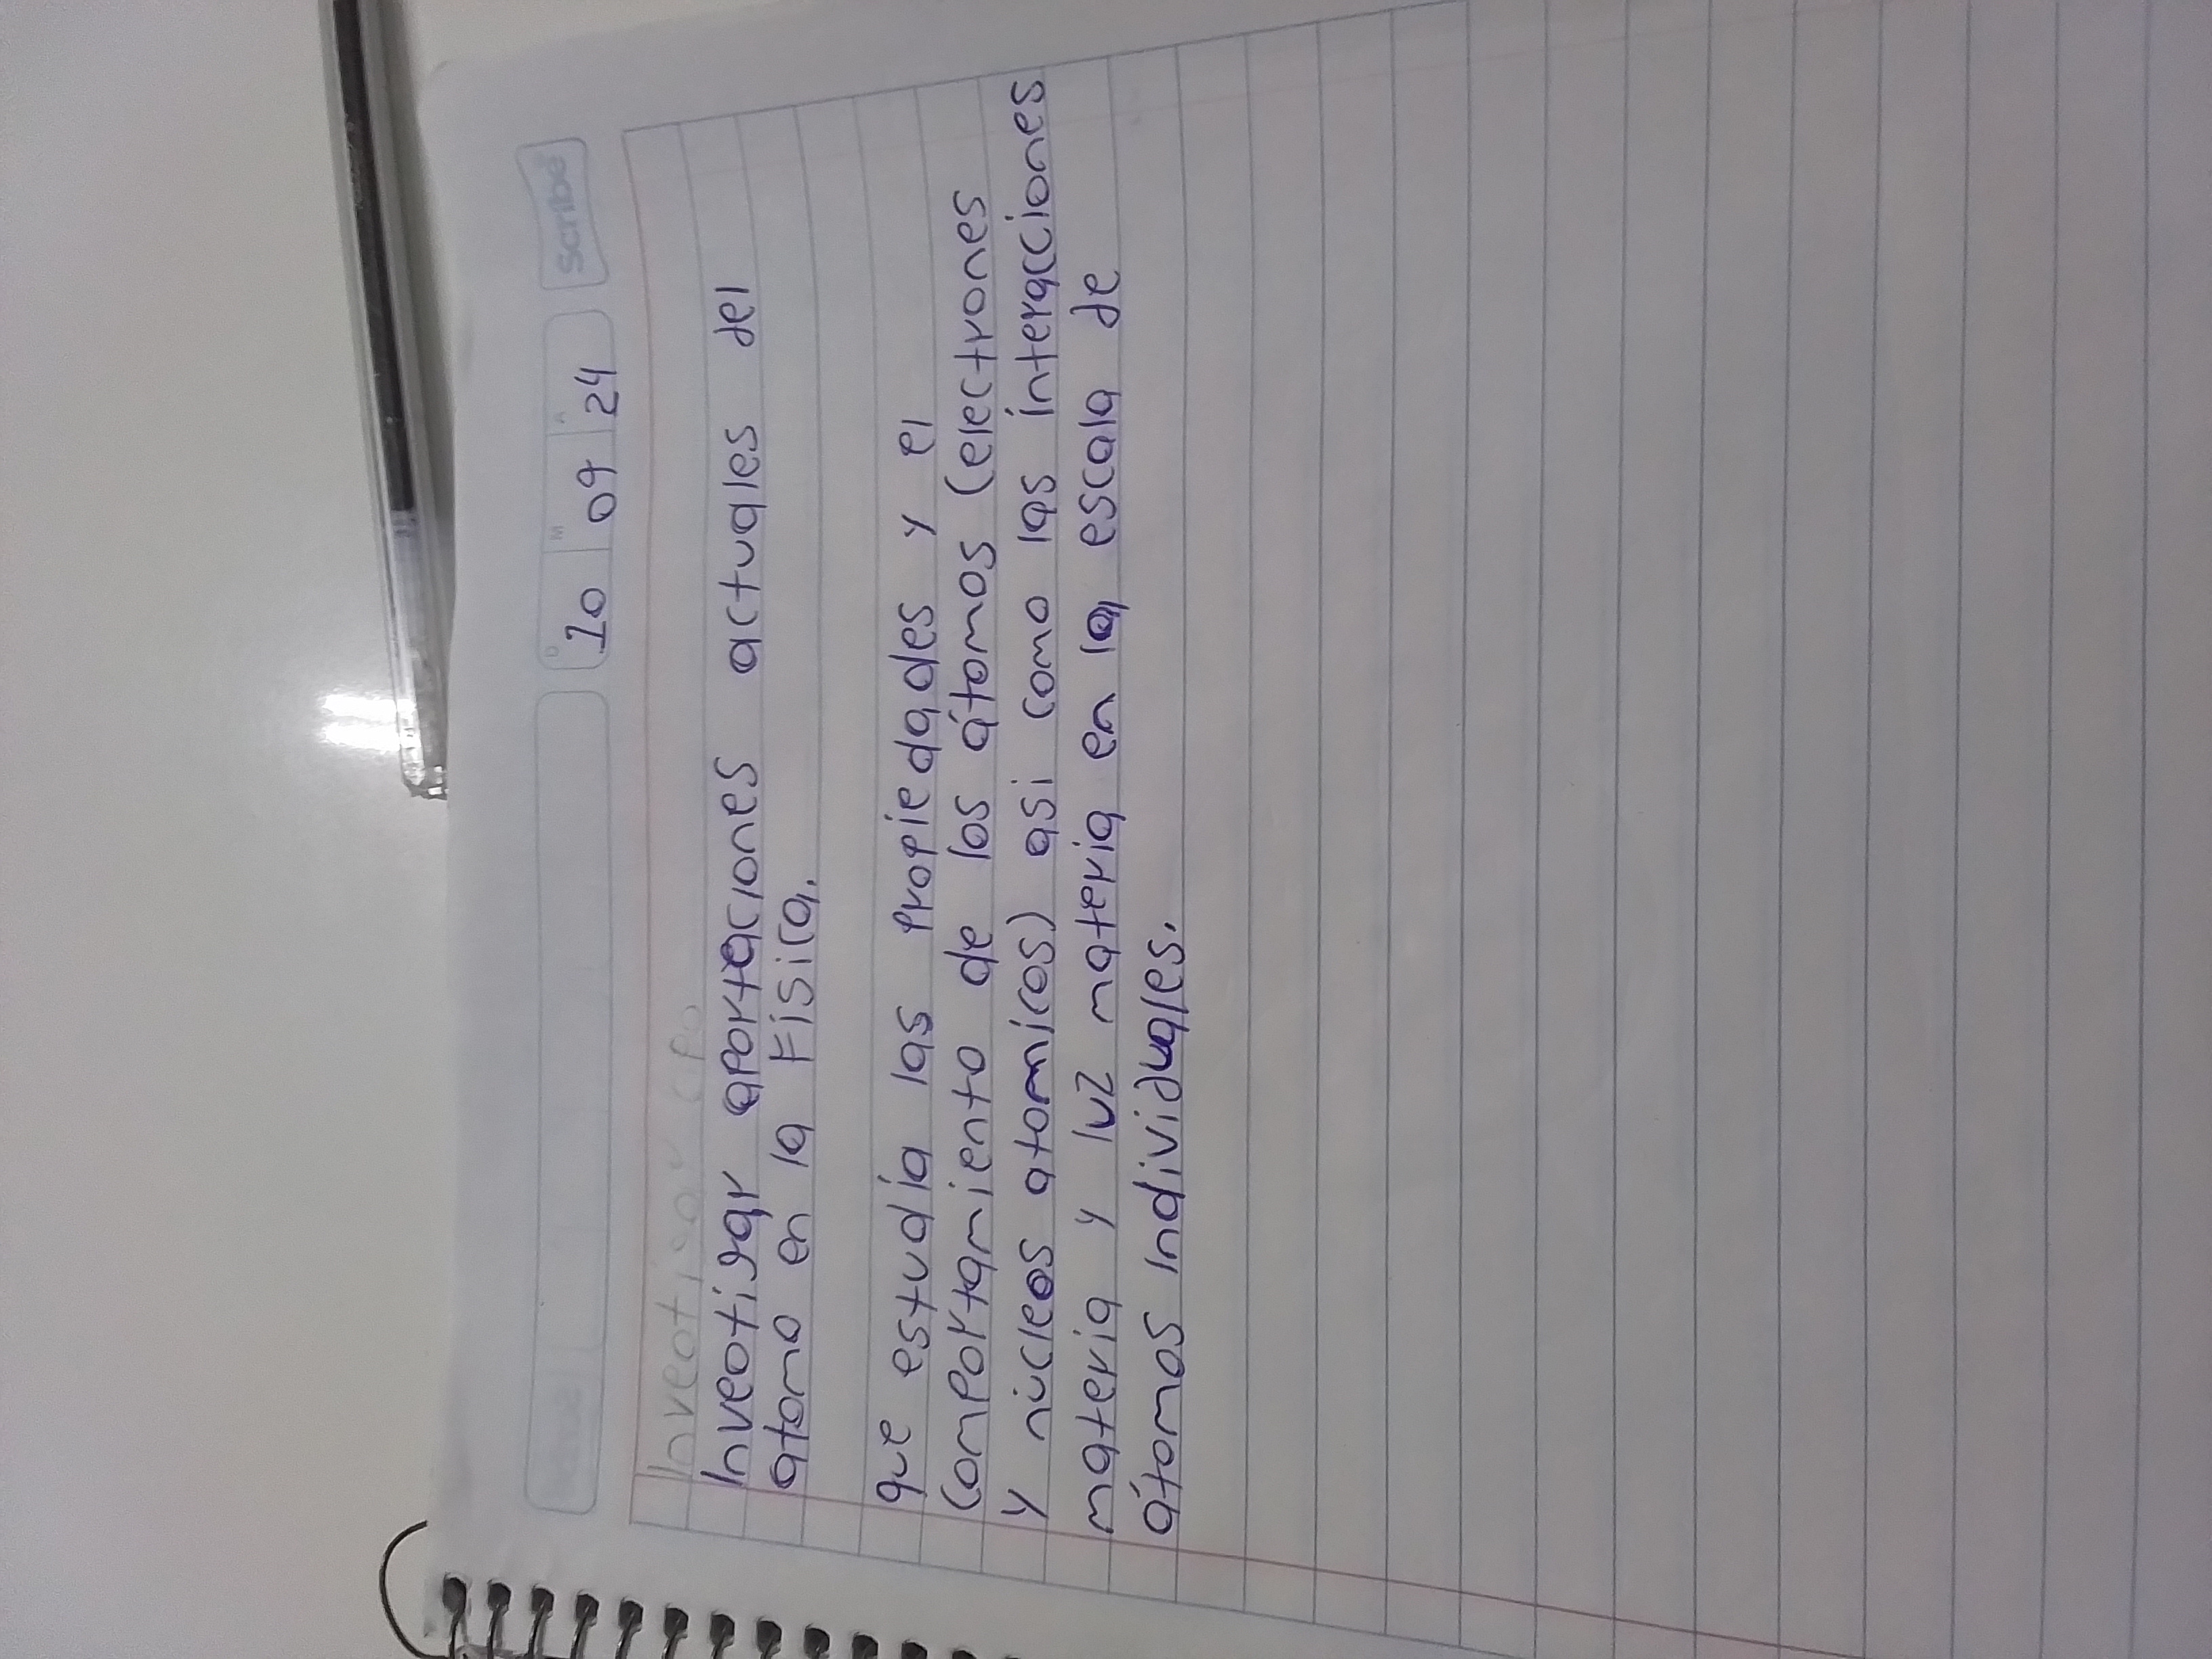 Scribe
D M A
10 09 24
Inveotigar apo
Inveotigar aportaciones actuales del
atomo en la Física.
que estudía las propiedades y el
comportamiento de los átomos (electrones
y núcleos atomicos) asi como las interacciones
materia y luz materia en la escala de
átomos individuales.